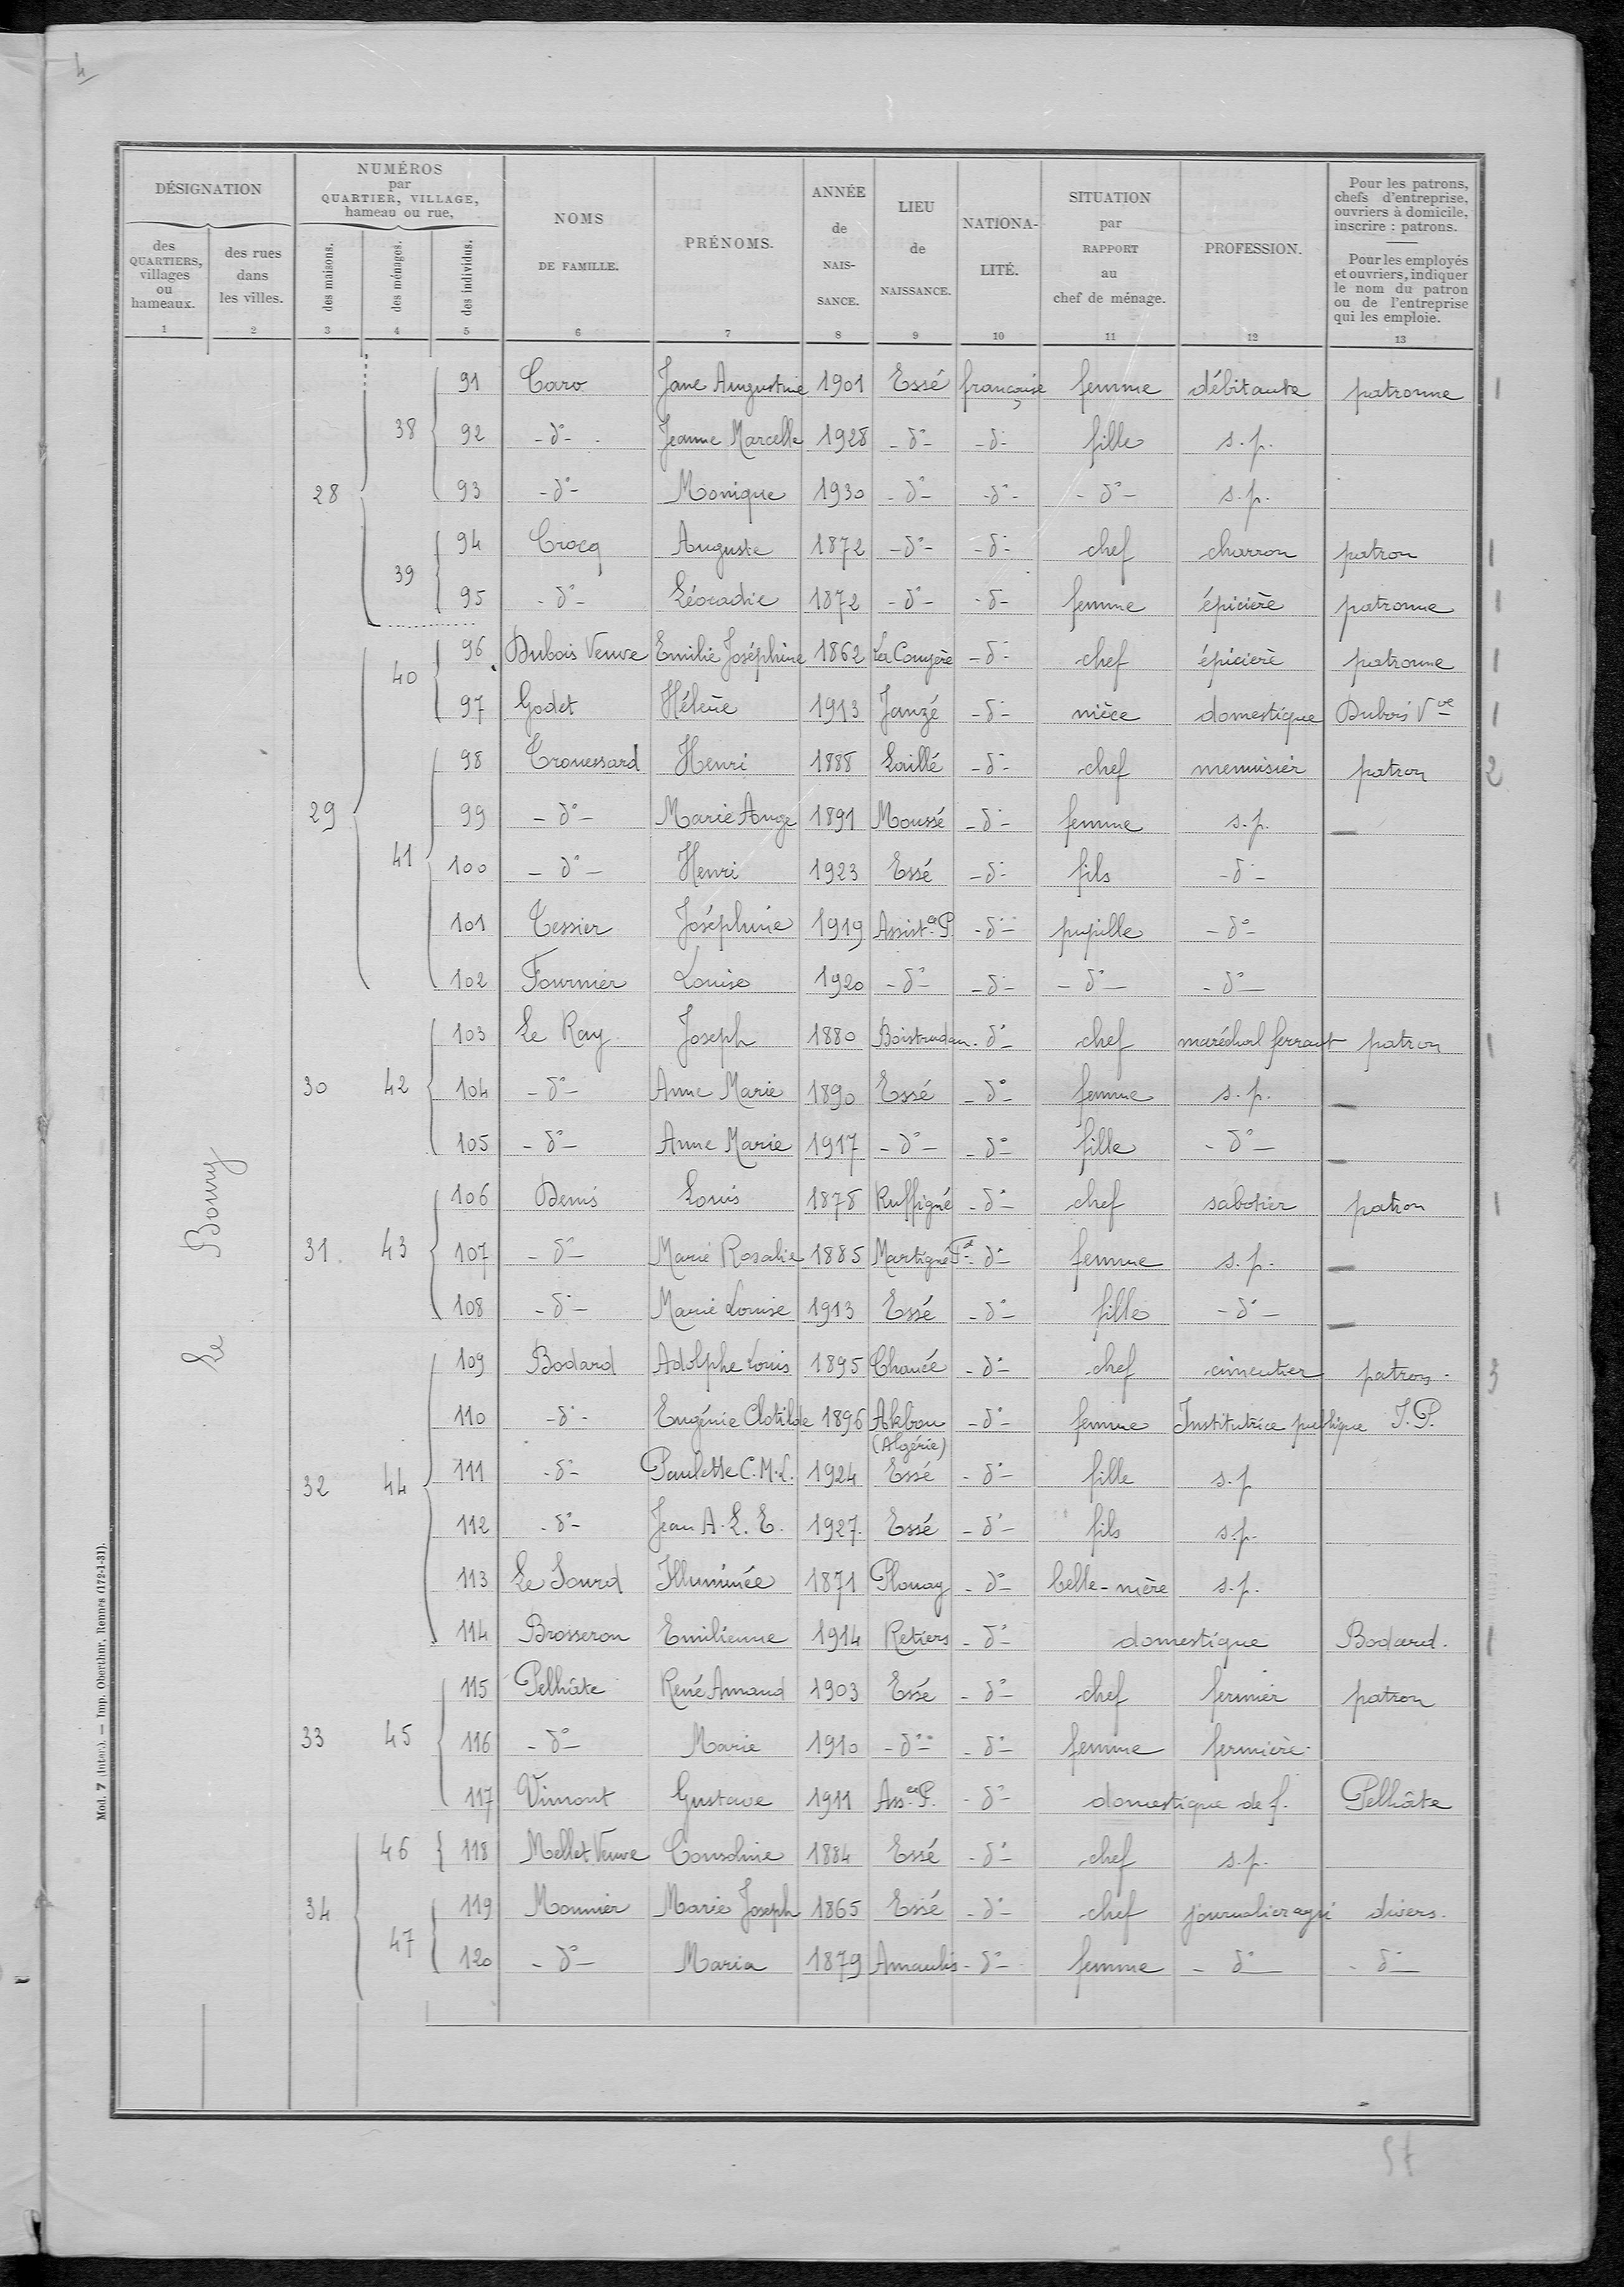 4
DÉSIGNATION
NUMÉROS
par
QUARTIER, VILLAGE,
hameau ou rue,
NOMS
DE FAMILLE.
PRÉNOMS.
ANNÉE
de
NAIS-
SANCE.
LIEU
de
NAISSANCE.
NATIONA-
LITÉ.
SITUATION
par
RAPPORT
au
chef de ménage.
PROFESSION.
Pour les patrons,
chefs d'entreprise,
ouvriers à domicile,
inscrire : patrons.
Pour les employés
et ouvriers, indiquer
le nom du patron
ou de l'entreprise
qui les emploie.
des
QUARTIERS,
villages
ou
hameaux.
des rues
dans
les villes.
des maisons.
des ménages.
des individus.
1 2 3 4 5 6 7 8 9 10 11 12 13
Le Bourg
91 Caro Jane Augustine 1901 Essé française femme débitante patronne 1
38 92 -d°- Jeanne Marcelle 1928 -d°- -d- fille s.p.
28 93 -d°- Monique 1930 -d°- -d°- -d°- s.p.
94 Crocq Auguste 1872 -d°- -d- chef charron patron 1
39 95 -d°- Léocadie 1872 -d°- -d- femme épicière patronne 1
96 Dubois Veuve Emilie Joséphine 1862 La Couyère -d- chef épicière patronne 1
40 97 Godet Hélène 1913 Janzé -d- nièce domestique Dubois Vve 1
98 Trouessard Henri 1888 Loillé -d- chef menuisier patron 2
29 99 -d°- Marie Ange 1891 Moussé -d- femme s.p. —
41 100 -d°- Henri 1923 Essé -d- fils -d-
101 Tessier Joséphine 1919 Assist.ce P. -d- pupille -d°-
102 Fournier Louise 1920 -d°- -d- -d°- -d°-
103 Le Ray Joseph 1880 Boistrudan -d°- chef maréchal ferrant patron 1
30 42 104 -d°- Anne Marie 1890 Essé -d°- femme s.p. —
105 -d°- Anne Marie 1917 -d°- -d°- fille -d°- —
106 Denis Louis 1878 Ruffigné -d°- chef sabotier patron 1
31. 43 107 -d°- Marie Rosalie 1885 Martigné Fd -d°- femme s.p. —
108 -d- Marie Louise 1913 Essé -d°- fille -d°- —
109 Bodard Adolphe Louis 1895 Chancé -d°- chef cimentier patron. 3
110 -d- Eugénie Clotilde 1896 Akbou -d°- femme Institutrice publique I.P.
(Algérie)
32 44 111 -d- Paulette C.M.L. 1924 Essé -d°- fille s.p
112 -d°- Jean A.L.E. 1927. Essé -d°- fils s.p.
113 Le Sourd Illuminée 1871 Plouay -d°- belle-mère s.p.
114 Brosseron Emilienne 1914 Retiers -d°- domestique Bodard. 1
115 Pelhâte René Amand 1903 Essé -d°- chef fermier patron
33 45 116 -d°- Marie 1910 -d°- -d°- femme fermière
117 Vimont Gustave 1911 Ass.ce P. -d°- domestique de f. Pelhâte
46 118 Mellet Veuve 1884 Essé -d°- chef s.p.
34 119 Monnier Marie Joseph 1865 Essé -d°- chef journalier agri divers.
47 120 -d°- Maria 1879 Amanlis -d°- femme -d°- -d°-
Mod. 7 (Inter.). — Imp. Oberthur, Rennes (172-1-31).